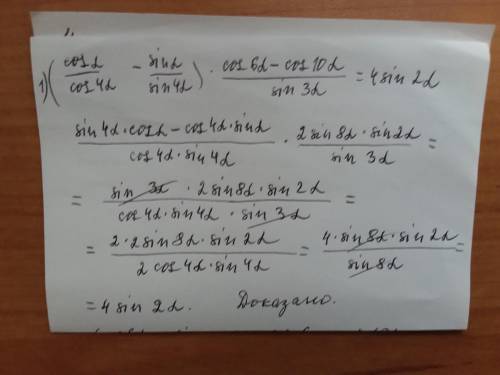 1) (cosα/cos4α − sinα/sin4α) · (cos6α − cos10α)/sin 3α = 4sin 2α
(sin4α·cosα − cos4α·sinα)/(cos4α·sin4α) · (2sin8α·sin2α)/(sin 3α) =
= (sin 3α · 2sin8α·sin2α)/(cos4α·sin4α · sin3α) =
= (2·2sin8α·sin2α)/(2cos4α·sin4α) = (4·sin8α·sin2α)/(sin8α) =
= 4 sin 2α. Доказано.